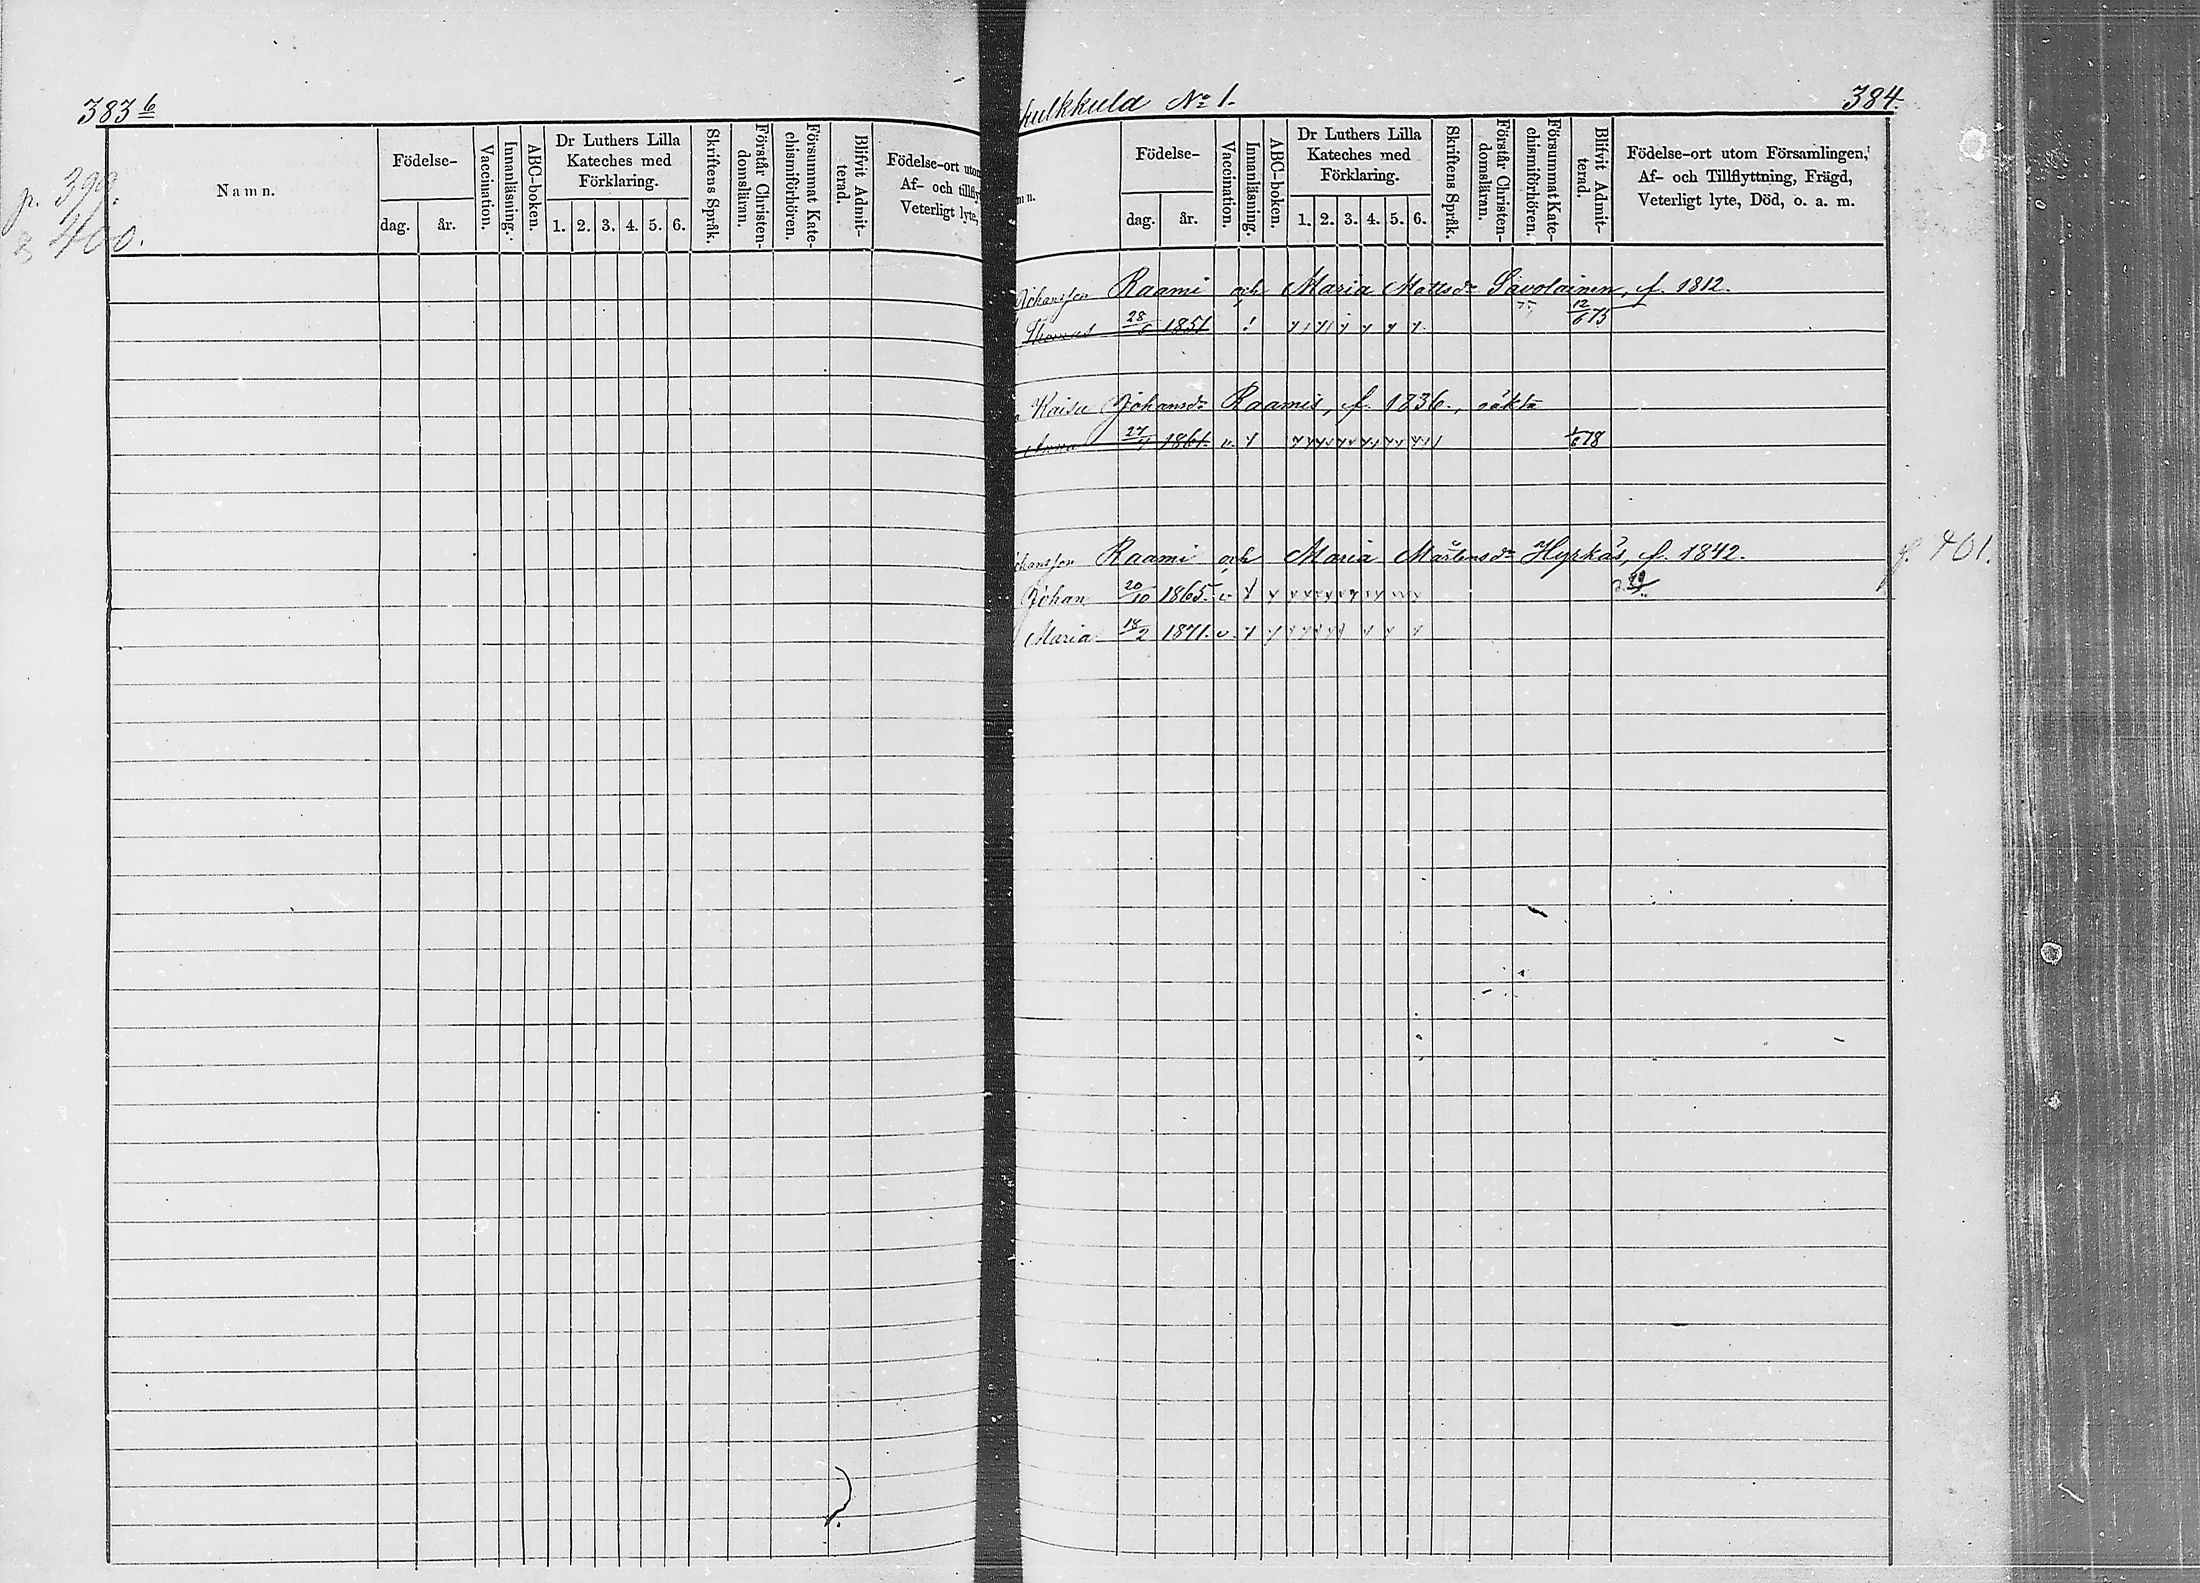 383 b
p. 399.
& 400.
Namn.
Födelse-
dag.
år.
Vaccination.
Innanläsning.
ABC-boken.
Dr Luthers Lilla
Kateches med
Förklaring.
1. 2. 3. 4. 5. 6.
Skriftens Språk.
Förstår Christen-
domsläran.
Försummat Kate-
chismiförhören.
Blifvit Admit-
terad.
Födelse-ort utom
Af- och tillfly
Veterligt lyte,
kulkkula No 1.
384.
n.
Födelse-
dag.
år.
Vaccination.
Innanläsning.
ABC-boken.
Dr Luthers Lilla
Kateches med
Förklaring.
1. 2. 3. 4. 5. 6.
Skriftens Språk.
Förstår Christen-
domsläran.
Försummat Kate-
chismiförhören.
Blifvit Admit-
terad.
Födelse-ort utom Församlingen,
Af- och Tillflyttning, Frägd,
Veterligt lyte, Död, o. a. m.
Johansson Raami och Maria Mattsdr Savolainen, f. 1812.
Thomas 1851 12/6 75
Kaisa Johansdr Raamis, f. 1836, oäkta
Anna 1861. v. 1/6 78
hansson Raami och Maria Mårtensdr Hyrkäs, f. 1842. p. 401.
Johan 20/10 1865. v.
Maria 18/2 1871. v.